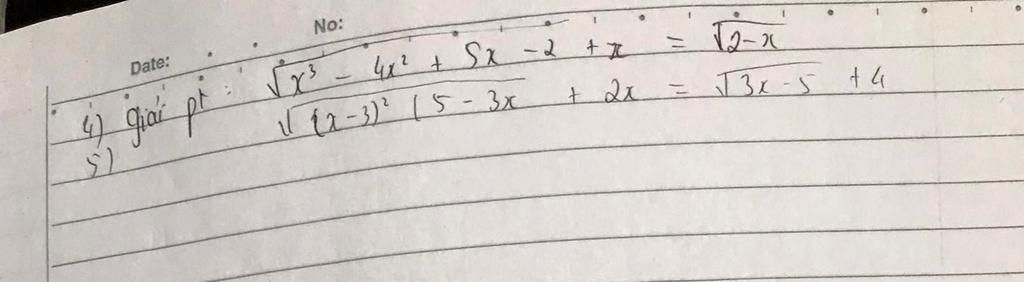 No:
Date:
4) giải pt: √(x³ - 4x² + 5x - 2) + x = √(2-x)
5) √((x-3)² (5 - 3x) + 2x = √(3x-5) + 4